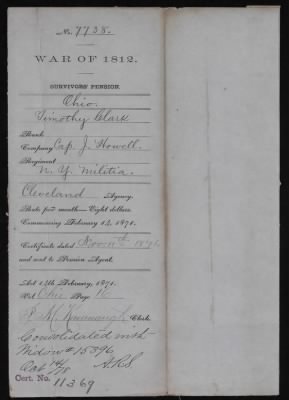 No. 7738.
WAR OF 1812.
SURVIVORS' PENSION.
Ohio.
Timothy Clark
Rank
Company Cap. J. Howell.
Regiment
N. Y. Militia.
Cleveland Agency.
Rate per month—Eight dollars.
Commencing February 14, 1871.
Certificate dated Nov. 11th 187
and sent to Pension Agent.
Act 14th February, 1871.
Vol Ohio Page 16
Clerk.
Consolidated with
Widow # 15396
Oct
Cert. No.
11369